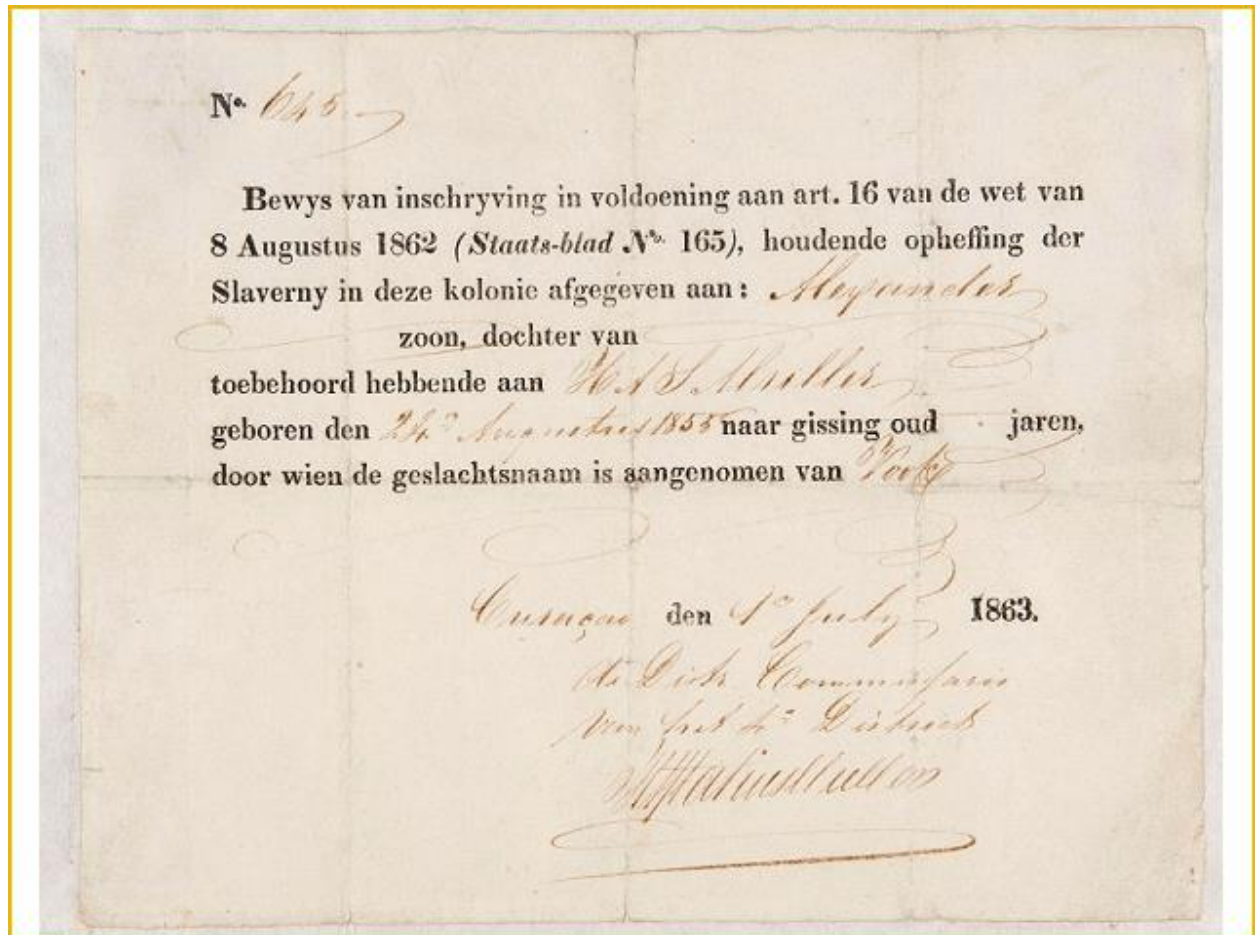 No. 645
Bewys van inschryving in voldoening aan art. 16 van de wet van
8 Augustus 1862 (Staats-blad No. 165), houdende opheffing der
Slaverny in deze kolonie afgegeven aan: Alexander
zoon, dochter van
toebehoord hebbende aan H A S Muller
geboren den 24e Augustus 1855 naar gissing oud jaren,
door wien de geslachtsnaam is aangenomen van
Curaçao den 1e July 1863.
de Distr Commissaris
van het 4e District